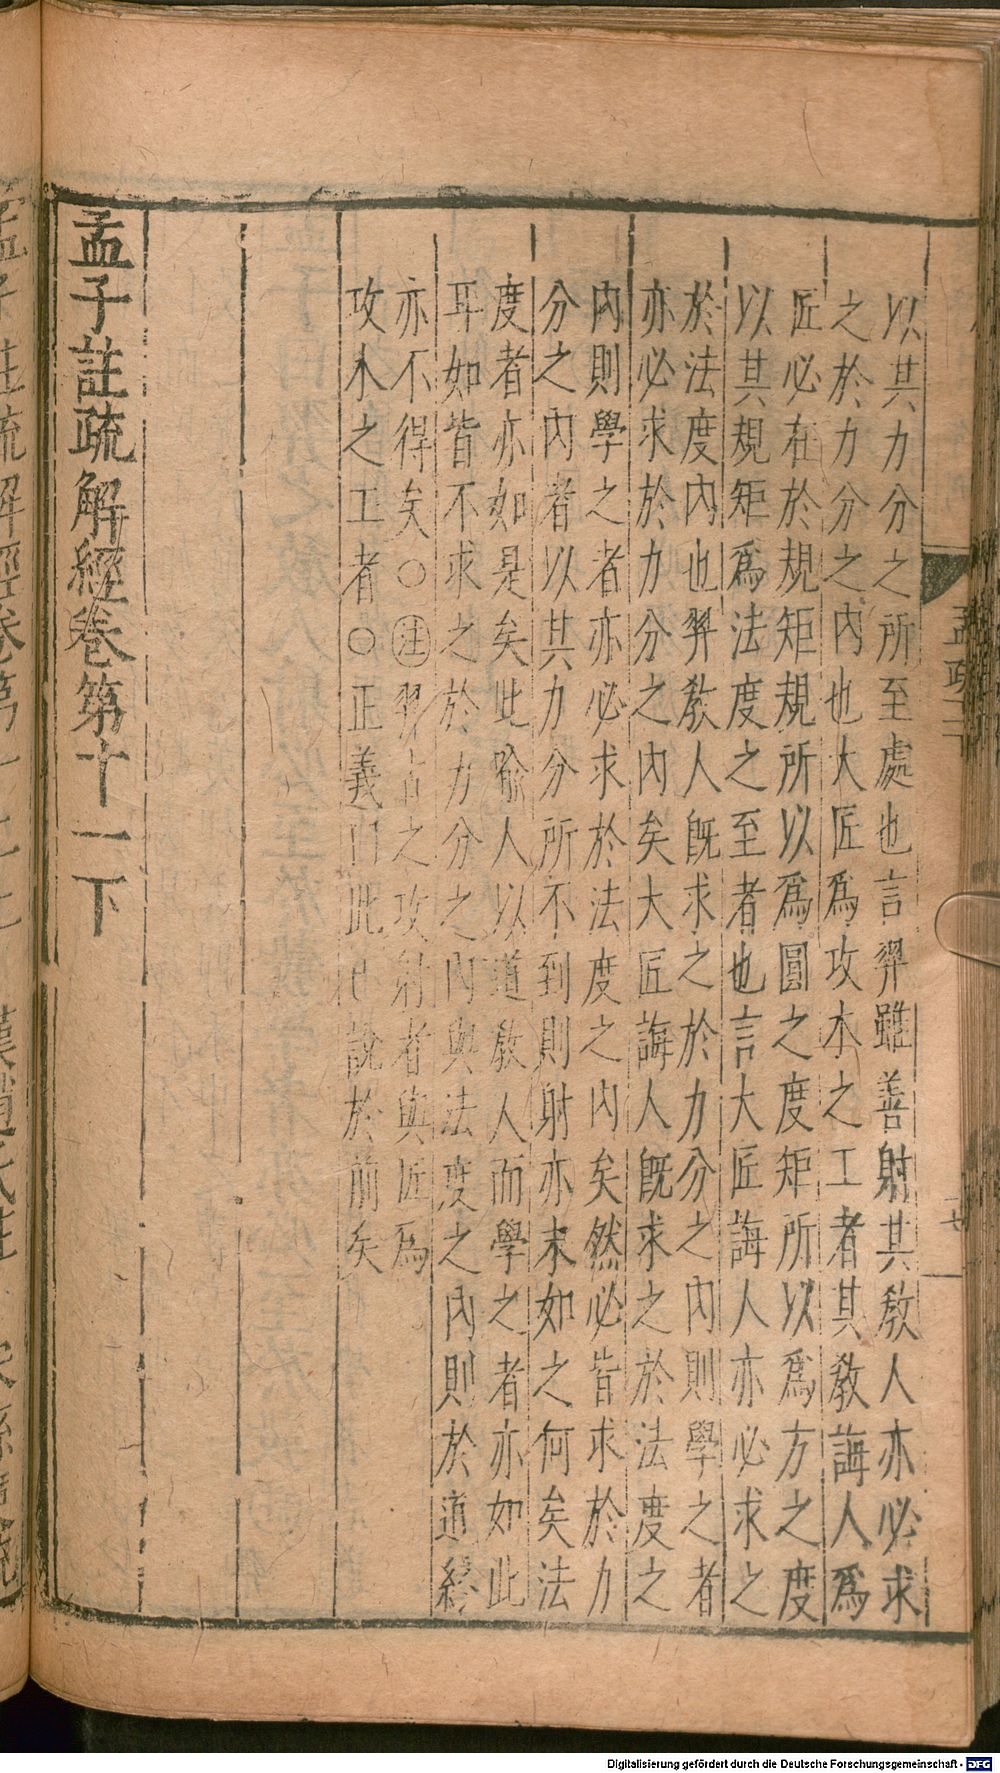 以其力分之所至處也言羿雖善射其教人亦必求
之於力分之內也大匠爲攻木之工者其教誨人爲
匠必在於規矩規所以爲圓之度矩所以爲方之度
以其規矩爲法度之至者也言大匠誨人亦必求之
於法度內也羿教人既求之於力分之內則學之者
亦必求於力分之內矣大匠誨人既求之於法度之
內則學之者亦必求於法度之內矣然必皆求於力
分之內者以其力分所不到則射亦末如之何矣法
度者亦如是矣此喻人以道教人而學之者亦如此
耳如皆不求之於力分之內與法度之內則於道終
亦不得矣○注羿古之攻射者與匠爲
攻木之工者○正義曰此已說於前矣
孟子註疏解經卷第十一下
孟疏十一
Digitalisierung gefördert durch die Deutsche Forschungsgemeinschaft - DFG